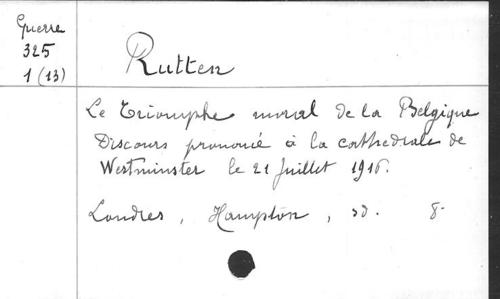 Guerre
325
1 (13)
Rutten
Le Triomphe moral de la Belgique
Discours prononcé à la cathédrale de
Westminster le 21 Juillet 1916.
Londres, Hampton, sd. 8-